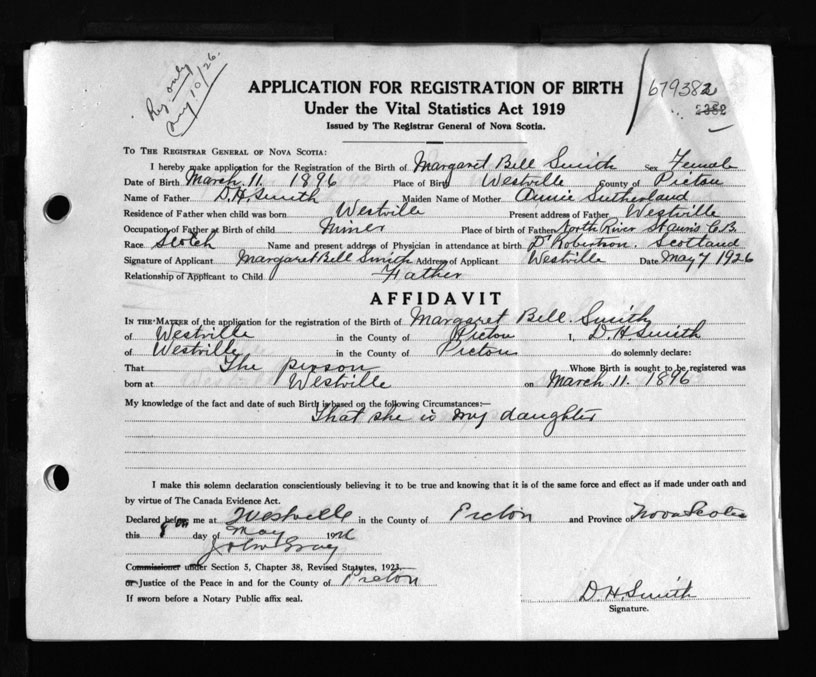 Reg. only
Aug. 10/26.
APPLICATION FOR REGISTRATION OF BIRTH
679382
Under the Vital Statistics Act 1919
2382
Issued by The Registrar General of Nova Scotia.
To The Registrar General of Nova Scotia:
I hereby make application for the Registration of the Birth of Margaret Bell Smith Sex Female
Date of Birth March 11. 1896 Place of Birth Westville County of Pictou
Name of Father D.H. Smith Maiden Name of Mother Annie Sutherland
Residence of Father when child was born Westville Present address of Father Westville
Occupation of Father at Birth of child Miner Place of birth of Father North River St Anns C.B.
Race Scotch Name and present address of Physician in attendance at birth Dr Robertson. Scotland
Signature of Applicant Margaret Bell Smith Address of Applicant Westville Date May 7 1926
Relationship of Applicant to Child Father
AFFIDAVIT
In the Matter of the application for the registration of the Birth of Margaret Bell. Smith
of Westville in the County of Pictou I, D.H. Smith
of Westville in the County of Pictou do solemnly declare:
That The person Whose Birth is sought to be registered was
born at Westville on March 11. 1896
My knowledge of the fact and date of such Birth is based on the following Circumstances:—
That she is my daughter
I make this solemn declaration conscientiously believing it to be true and knowing that it is of the same force and effect as if made under oath and
by virtue of The Canada Evidence Act.
Declared before me at Westville in the County of Pictou and Province of Nova Scotia
this 8 day of May 1926
John Gray
Commissioner under Section 5, Chapter 38, Revised Statutes, 1923,
or Justice of the Peace in and for the County of Pictou
If sworn before a Notary Public affix seal.
D.H. Smith
Signature.